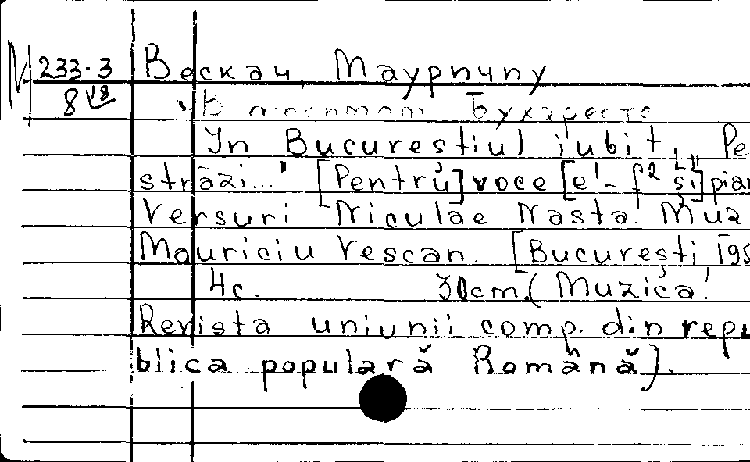 М 233-3 Вескан, Маурички
8 V8 "В любимом Бухаресте
In Bucureştiul iubit, Pe
străzi..." [Pentru] voce [e¹-f² şi] pian
Versuri Niculae Nasta. Muz
Mauriciu Vescan. [Bucureşti, 195
4c. 30cm. (Muzica.
Revista uniunii comp. din repu
blica populară Română].